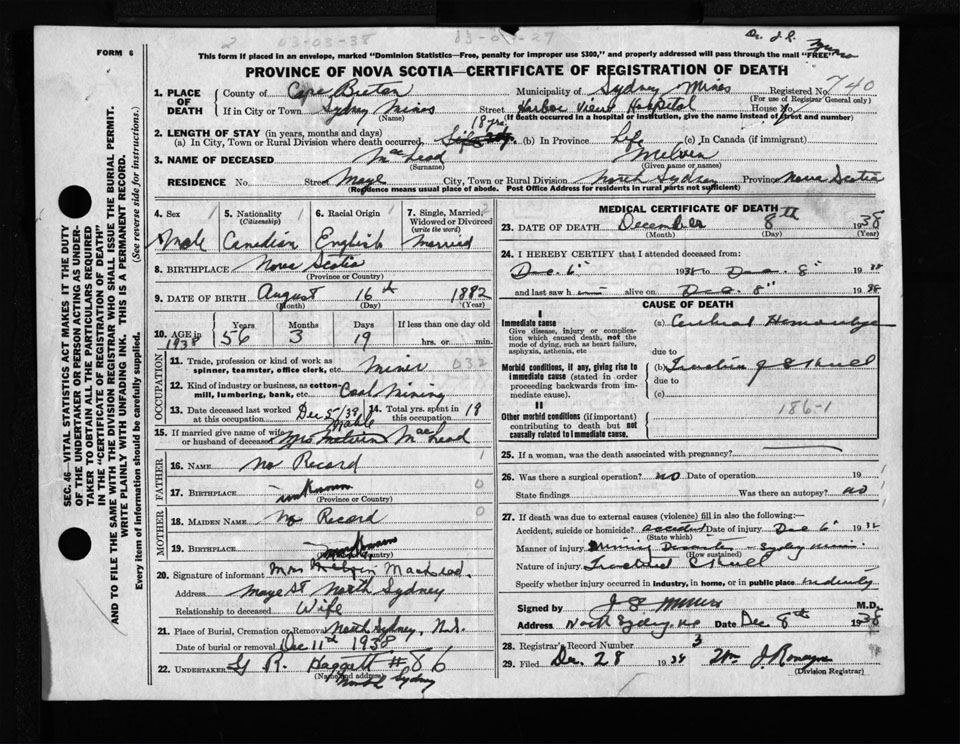 FORM 6
2 03-03-38
Dr. J. S.
This form if placed in an envelope, marked "Dominion Statistics—Free, penalty for improper use $300," and properly addressed will pass through the mail "FREE"
PROVINCE OF NOVA SCOTIA—CERTIFICATE OF REGISTRATION OF DEATH
740
1. PLACE OF DEATH County of Cape Breton Municipality of Sydney Mines Registered No.
(For use of Registrar General only)
If in City or Town Sydney Mines Street Harbor View Hospital House No.
(Name) (If death occurred in a hospital or institution, give the name instead of street and number)
2. LENGTH OF STAY (in years, months and days)
(a) In City, Town or Rural Division where death occurred, 18 yrs (b) In Province Life (c) In Canada (if immigrant)
3. NAME OF DECEASED MacLead Melvin
(Surname) (Given name or names)
RESIDENCE No. Street Maye City, Town or Rural Division North Sydney Province Nova Scotia
(Residence means usual place of abode. Post Office Address for residents in rural parts not sufficient)
4. Sex Male
5. Nationality (Citizenship) Canadian
6. Racial Origin English
7. Single, Married, Widowed or Divorced (write the word) Married
8. BIRTHPLACE Nova Scotia
(Province or Country)
9. DATE OF BIRTH August 16th 1882
(Month) (Day) (Year)
10. AGE in 1938 Years 56 Months 3 Days 19 If less than one day old hrs. or min.
OCCUPATION
11. Trade, profession or kind of work as spinner, teamster, office clerk, etc. Miner 032
12. Kind of industry or business, as cotton-mill, lumbering, bank, etc. Coal Mining
13. Date deceased last worked at this occupation Dec 5/38 14. Total yrs. spent in this occupation 19
15. If married give name of wife or husband of deceased Mrs Melvin Mable MacLead
FATHER
16. NAME No Record
17. BIRTHPLACE unknown
(Province or Country)
MOTHER
18. MAIDEN NAME No Record
19. BIRTHPLACE unknown
(Province or Country)
20. Signature of informant Mrs Melvin MacLead
Address Maye St North Sydney
Relationship to deceased Wife
21. Place of Burial, Cremation or Removal North Sydney, N.S.
Date of burial or removal Dec 11th 1938
22. UNDERTAKER G R. Haggett #86
(Name and address) North Sydney
MEDICAL CERTIFICATE OF DEATH
23. DATE OF DEATH December 8th 1938
(Month) (Day) (Year)
24. I HEREBY CERTIFY that I attended deceased from:
Dec. 6" 1938 to Dec. 8" 1938
and last saw him alive on Dec. 8" 1938
CAUSE OF DEATH
I
Immediate cause
Give disease, injury or complication which caused death, not the mode of dying, such as heart failure, asphyxia, asthenia, etc
(a) Cerebral Hemorrhage
due to
Morbid conditions, if any, giving rise to immediate cause (stated in order proceeding backwards from immediate cause).
(b) Fracture of Skull
due to
(c)
186-1
II
Other morbid conditions (if important) contributing to death but not causally related to immediate cause.
25. If a woman, was the death associated with pregnancy?
26. Was there a surgical operation? no Date of operation 19
State findings Was there an autopsy? no
27. If death was due to external causes (violence) fill in also the following:—
Accident, suicide or homicide? accident Date of injury Dec 6" 1938
(State which)
Manner of injury Mining Disaster - Sydney Mines
(How sustained)
Nature of injury Fractured Skull
Specify whether injury occurred in industry, in home, or in public place industry
Signed by M.D.
Address North Sydney, N.S. Date Dec 8th 1938
28. Registrar's Record Number 3
29. Filed Dec. 28 1938 Wm J.
(Division Registrar)
SEC. 46—VITAL STATISTICS ACT MAKES IT THE DUTY OF THE UNDERTAKER OR PERSON ACTING AS UNDERTAKER TO OBTAIN ALL THE PARTICULARS REQUIRED IN THE "CERTIFICATE OF REGISTRATION OF DEATH" AND TO FILE THE SAME WITH THE DIVISION REGISTRAR WHO SHALL ISSUE THE BURIAL PERMIT.
WRITE PLAINLY WITH UNFADING INK. THIS IS A PERMANENT RECORD.
Every item of information should be carefully supplied. (See reverse side for instructions.)